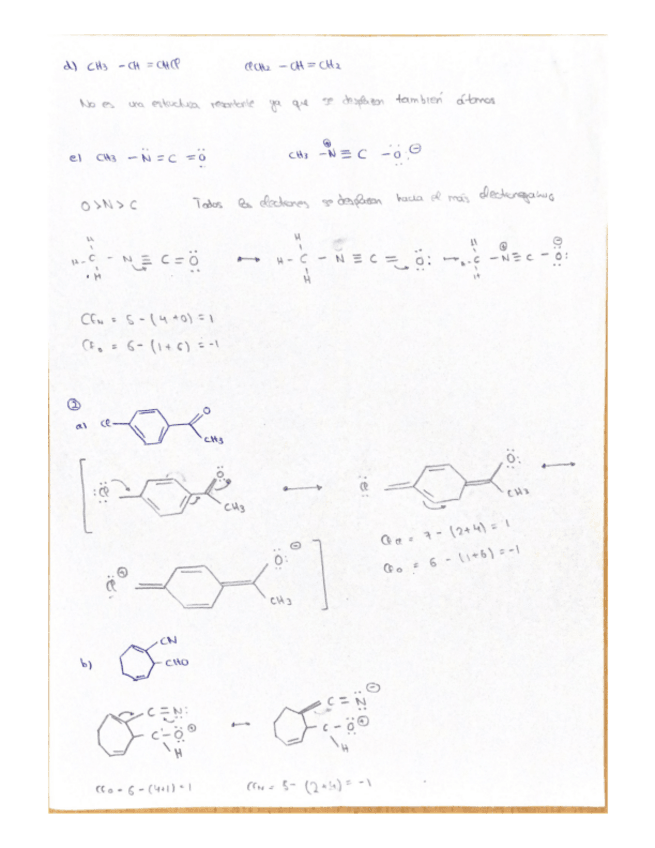 d) CH3 - CH = CHCl   ClCH2 - CH = CH2
No es una estructura resonante ya que se desplazan también átomos
e) CH3 - N = C = O   CH3 - N ≡ C - O ⊖
O > N > C   Todos los electrones se desplazan hacia el más electronegativo
H   H   H
H - C - N = C = O ↔ H - C - N ≡ C = O: → H - C - N ≡ C - O:
H   H   H
CFN = 5 - (4+0) = 1
CFO = 6 - (1+6) = -1
②
a) Cl   O
CH3
:Cl   O   CH3   ↔   Cl   O:   CH3   ↔
CFCl = 7 - (2+4) = 1
CFO = 6 - (1+6) = -1
Cl ⊕   O: ⊖   CH3
b)   CN
CHO
C ≡ N:   ↔   C = N ⊖
C - O ⊕   C - O ⊕
H   H
CFO = 6 - (4+1) = 1   CFN = 5 - (2+4) = -1